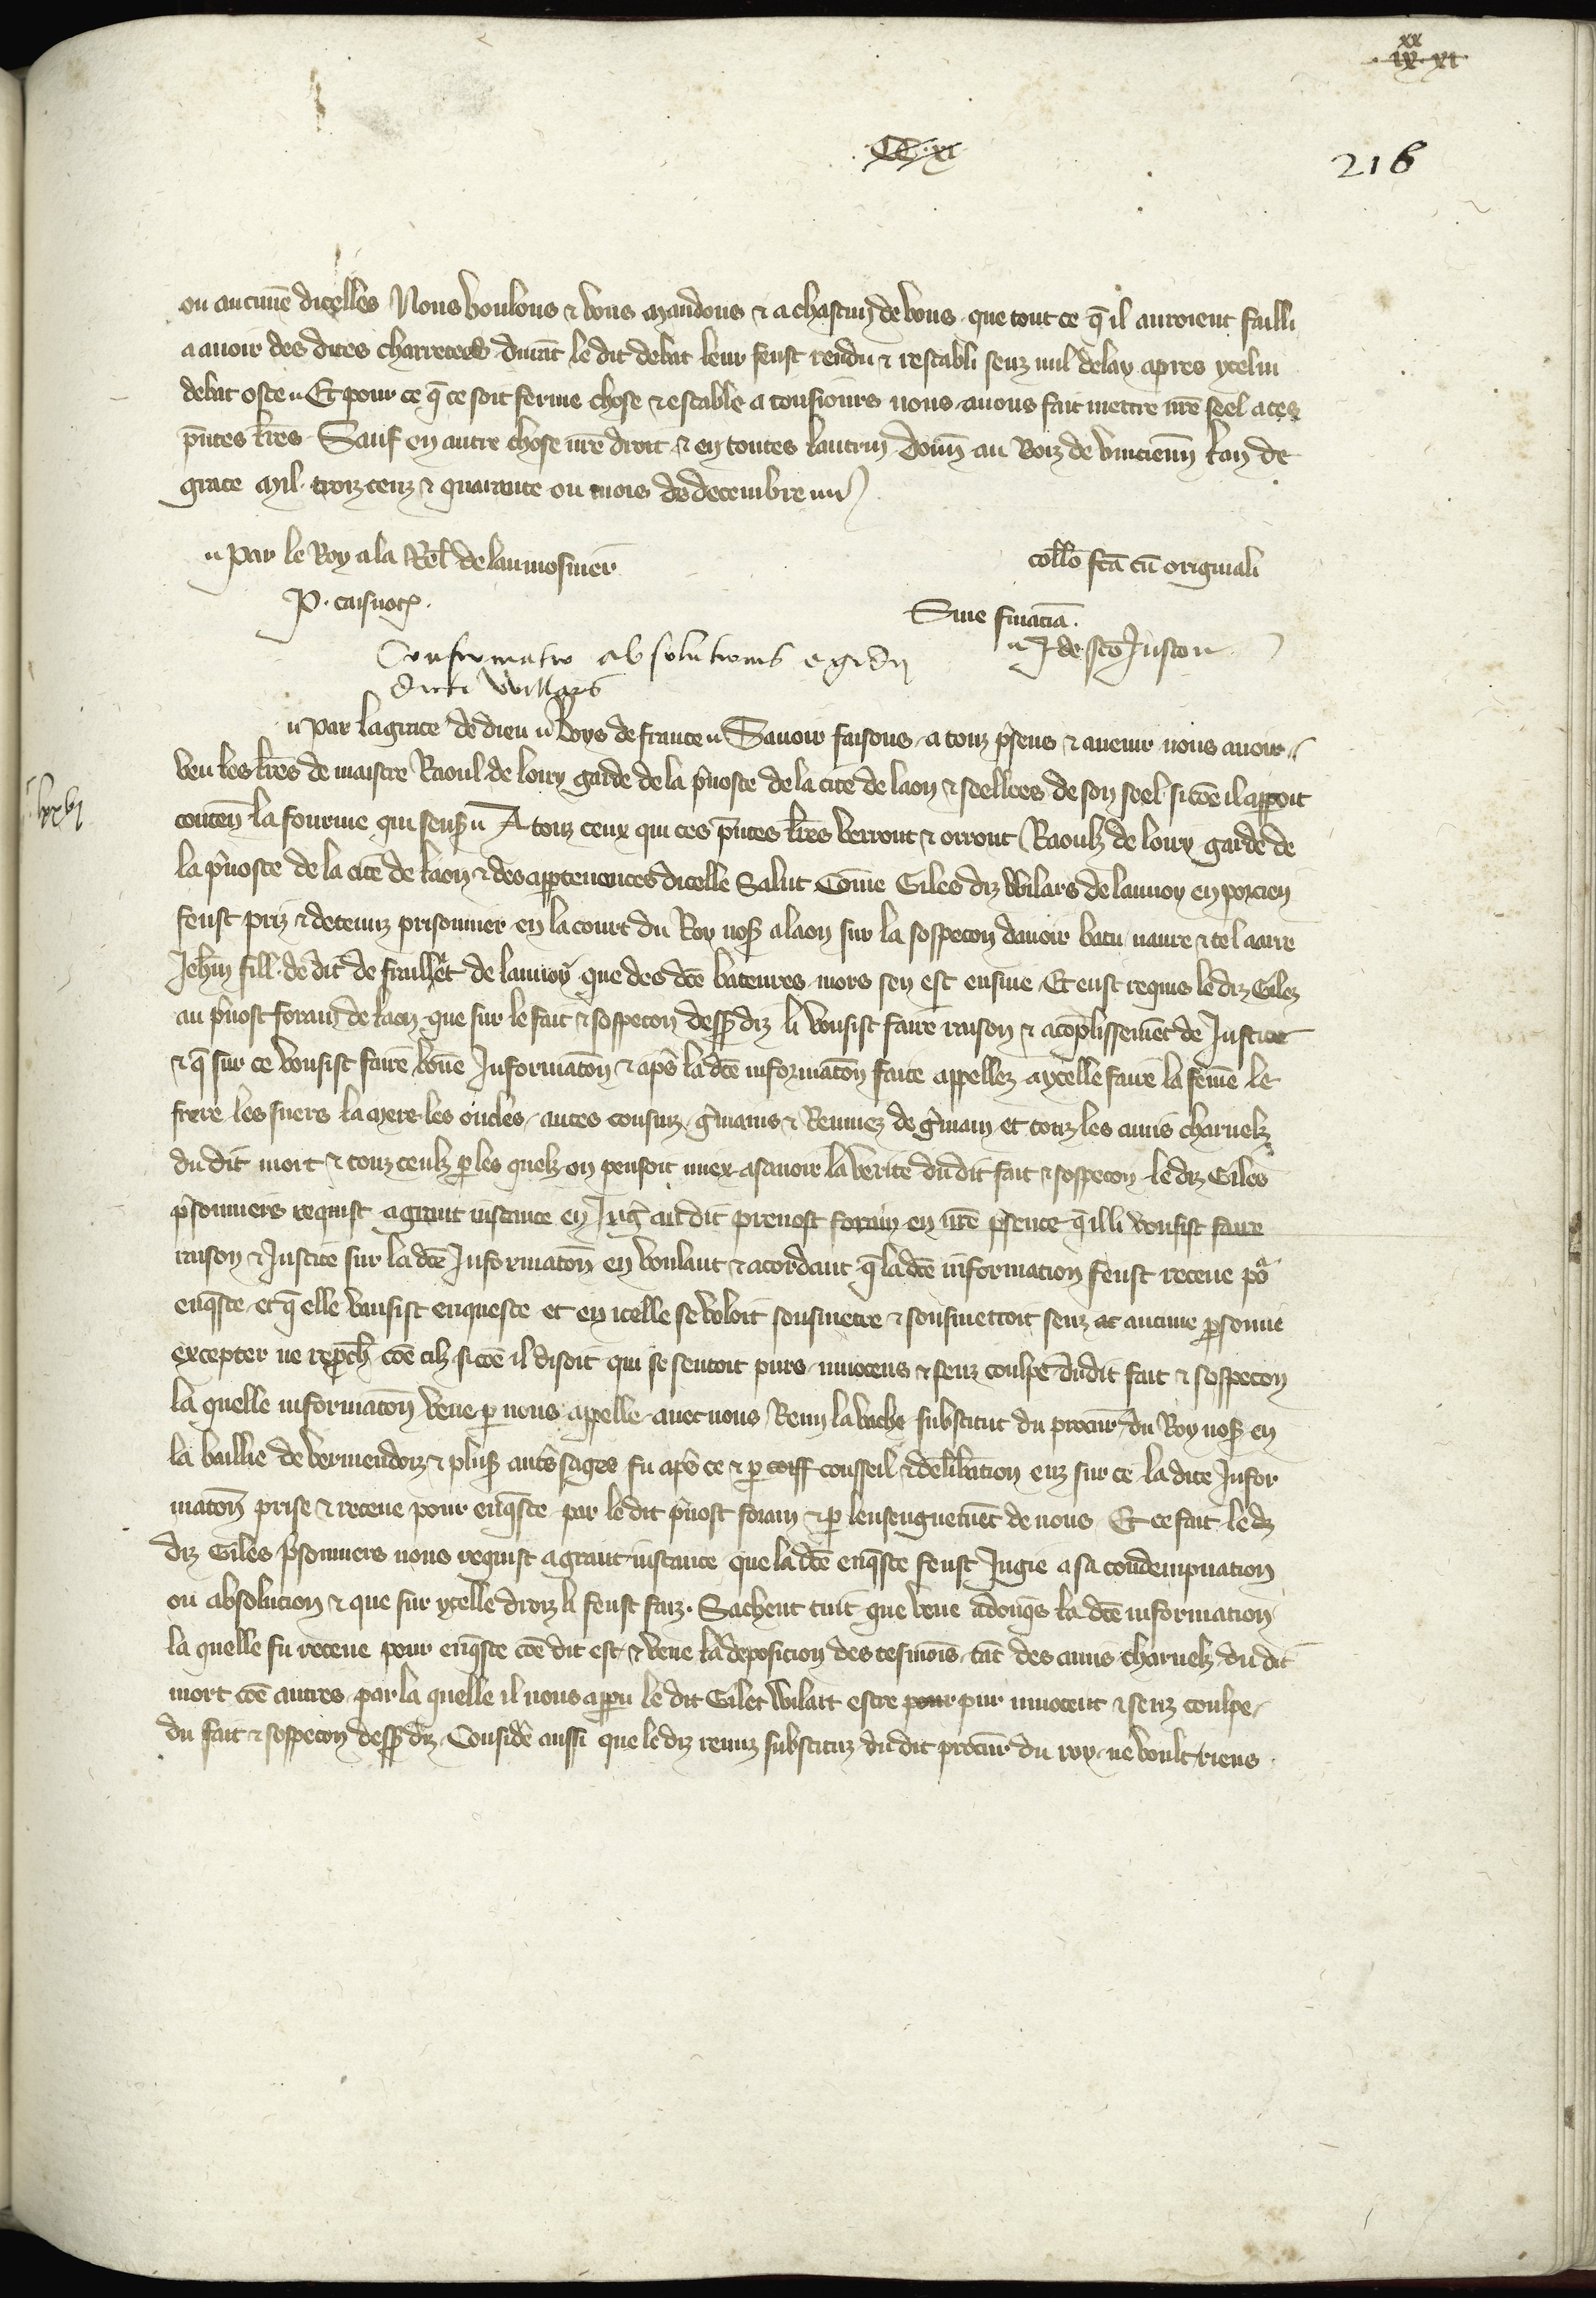 xx
ix xi
CC xi
216
ou aucune dicelles Nous voulons & vous mandons & a chascun de vous que tout ce q̄ il auroient failli
a auoir des dites charretees durāt le dit debat leur feust rendu & restabli senz nul delay apres ycelui
debat oste Et pour ce q̄ ce soit ferme chose & estable a tousiours nous auons fait mettre nr̄e seel a ces
p̄ntes lr̄es Sauf en autre chose nr̄e droit & en toutes lautrui Donn̄ au Boiz de vincienn̄ lan de
grace Mil troiz cenz & quarante ou mois de decembre
Par le Roy a la Rel̄ de laumosnier
P. caisnot
coll̄o fc̄a cū originali
Sine financia.
J de sc̄o Justo
Confirmatio absolutionis egidij
dicti Willars
par la grace de dieu Roys de france Sauoir faisons a touz p̄sens & auenir nous auoir
lxxvj
veu les lr̄es de maistre Raoul de loiry garde de la p̄uoste de la cite de laon & seellees de son seel si cōe il apparoit
conten̄ la fourme qui sensuit A touz ceux qui ces p̄ntes lr̄es verront & orront Raoulz de loiry garde de
la p̄uoste de la cite de laon & des appartenences dicelle Salut Cōme Giles diz Wilars de launoy en porcien
feust priz & detenuz prisonnier en la court du Roy nos̄ a laon sur la soppecon dauoir batu naure & tel aarre
Jeh̄n fill de dit de fraillet de launoy que des dc̄es bateures mors sen est ensiue Et eust requis le diz Gilez
au p̄uost forain de laon que sur le fait & soppecon dess᷒ diz li vousist faire raison & acōplissemēt de Justice
& q̄ sur ce vousist faire bōne Informacōn & ap̄s la dc̄e informacōn faite appellez a ycelle faire la fēme le
frere les suers la mere les oncles antes cousinz g̃mains & Remuez de g̃main et touz les amis charnelz
du dit mort & touz ceulz p les quelz on pensoit miex a sauoir la verite du dit fait & soppecon le diz Giles
p̄sonniers requist a grant instance en Jug̃ au dit preuost forain en nr̄e p̄sence q̄ il li vousist faire
raison & Justice sur la dc̄e Informacōn en voulant & acordant q̄ la dc̄e informacion feust receue po᷒
enq̄ste et q̄ elle vausist enqueste et en icelle se voloit sousmetre & sousmettoit senz aucune p̄sonne
excepter ne rep̄ch̄ cōe cilz si cōe il disoit qui se sentoit purs innocens & senz coulpe du dit fait & soppecon
la quelle informacōn veue p nous appelle auec nous Remi la vache substitut du procur̄ du Roy nos̄ en
la baillie de vermendoiz & plus᷒ aut̄s sages fu ap̄s ce & p conseil & deliberation euz sur ce la dite Infor
macōn prise & receue pour enq̄ste par le dit p̄uost forain & p lenseignemēt de nous Et ce fait le dz
diz Giles p̄sonniers nous requist a grant instance que la dc̄e enq̄ste feust Jugie a sa condempnation
ou absolucion & que sur ycelle droiz li feust faiz. Sachent tuit que veue adonq̄s la dc̄e informacion
la quelle fu receue pour enq̄ste cōe dit est & veue la deposicion des tesmoīs tāt des amis charnelz du dit
mort cōe autres par la quelle il nous apparu le dit Gilet Wilart estre pour pur innocent & senz coulpe
du fait & soppecon dess᷒ diz Considere aussi que le diz remiz substituz du dit procur̄ du roy ne voult riens